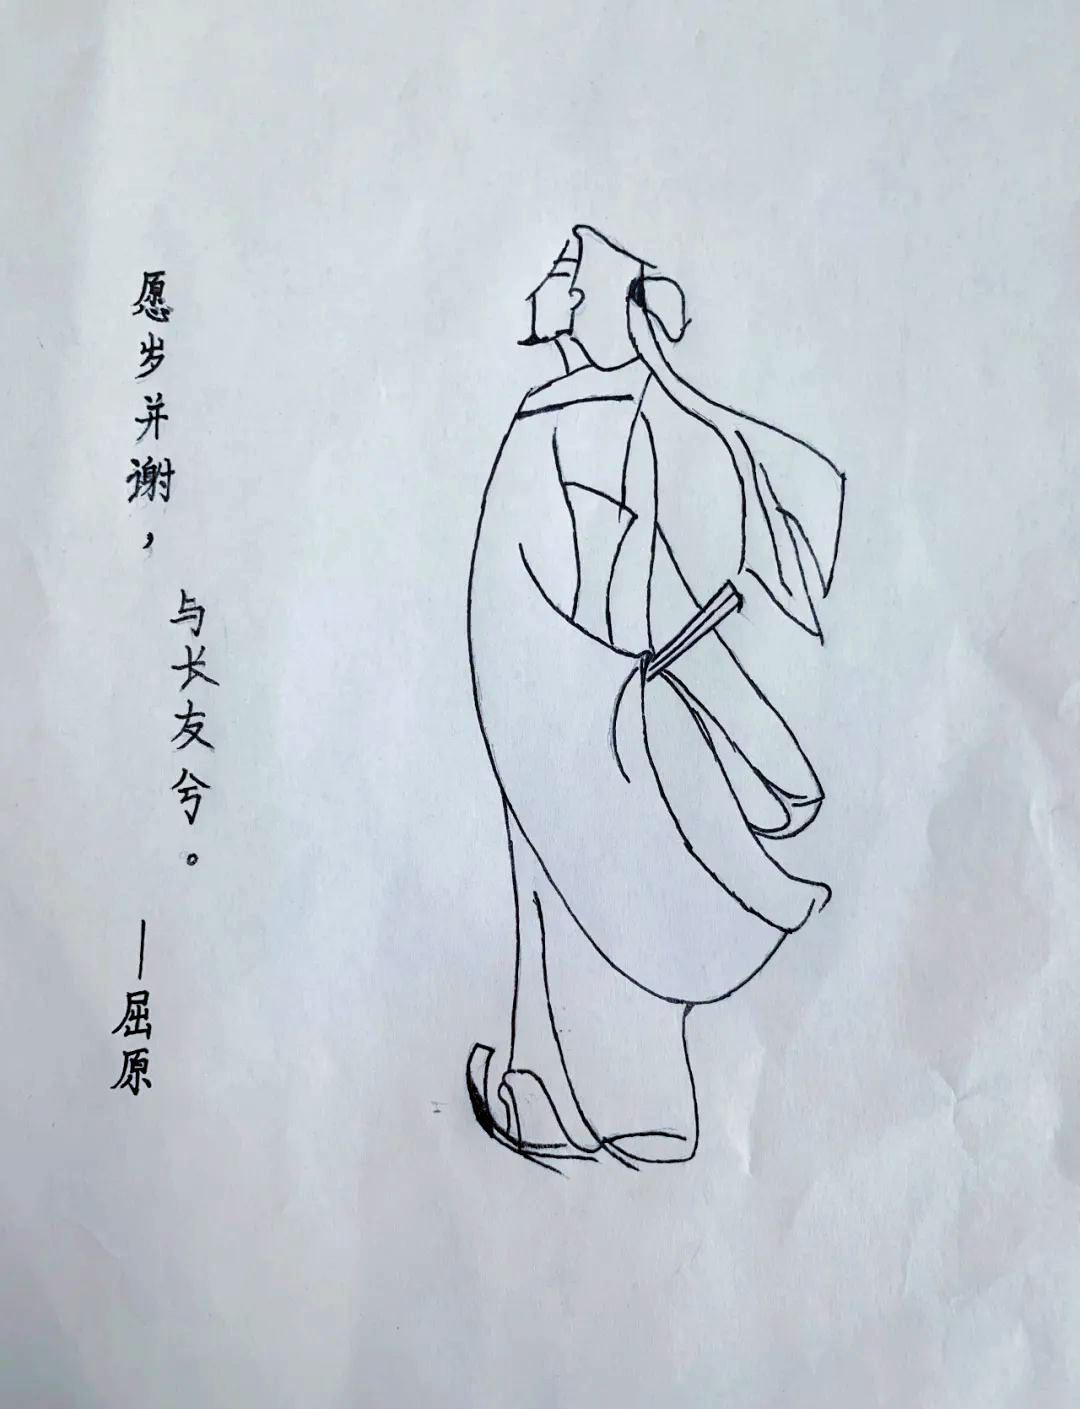 愿岁并谢，
与长友兮。
—屈原